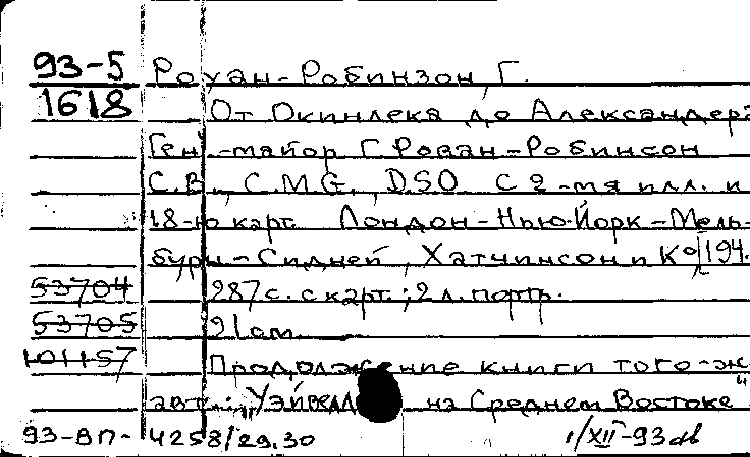 93-5 Роуан-Робинзон, Г.
1618 От Окинлека до Александера
Ген.-майор Г. Рован-Робинсон
C.B., C.M.G., DSO. С 2-мя илл. и
18-ю карт. Лондон-Нью-Йорк-Мель-
бурн-Сидней, Хатчинсон и Ко, 194
53704 287 с. с карт.; 2 л. портр.
53705 21 см.
101157 Продолжение книги того-ж
авт.: "Уэйвелл на Среднем Востоке"
93-ВП- 4258/29.30 1/XII-93